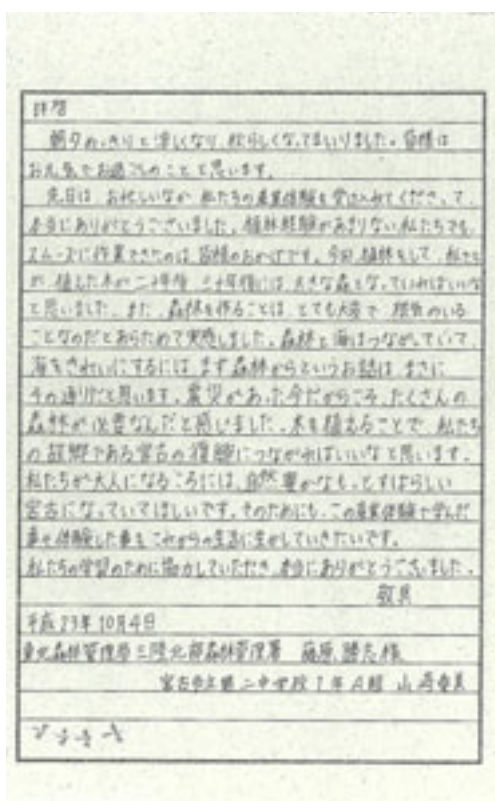 拝啓
朝夕めっきりと涼しくなり、秋らしくなってまいりました。皆様は
お元気でお過ごしのことと思います。
先日は、お忙しいなか 私たちの産業体験を受け入れてくださって、
本当にありがとうございました。植林経験があまりない私たちでも
スムーズに作業できたのは、皆様のおかげです。今回、植林をして、私たち
が植えた木が二十年後、三十年後には、大きな森となっていればいいな
と思いました。また、森林を作ることは、とても大変で、根気のいる
ことなのだとあらためて実感しました。森林と海はつながっていて、
海をきれいにするには、まず森林からというお話は、まさに
その通りだと思います。震災があった今だからこそ、たくさんの
森林が必要なんだと感じました。木を植えることで、私たち
の故郷である宮古の復興につながればいいなと思います。
私たちが大人になるころには、自然豊かなもっとすばらしい
宮古になっていてほしいです。そのためにも、この産業体験で学んだ
事や体験した事をこれからの生活に生かしていきたいです。
私たちの学習のために協力していただき、本当にありがとうございました。
敬具
平成23年10月4日
東北森林管理局三陸北部森林管理署 藤原 勝志様
宮古市立第二中学校1年A組 山崎